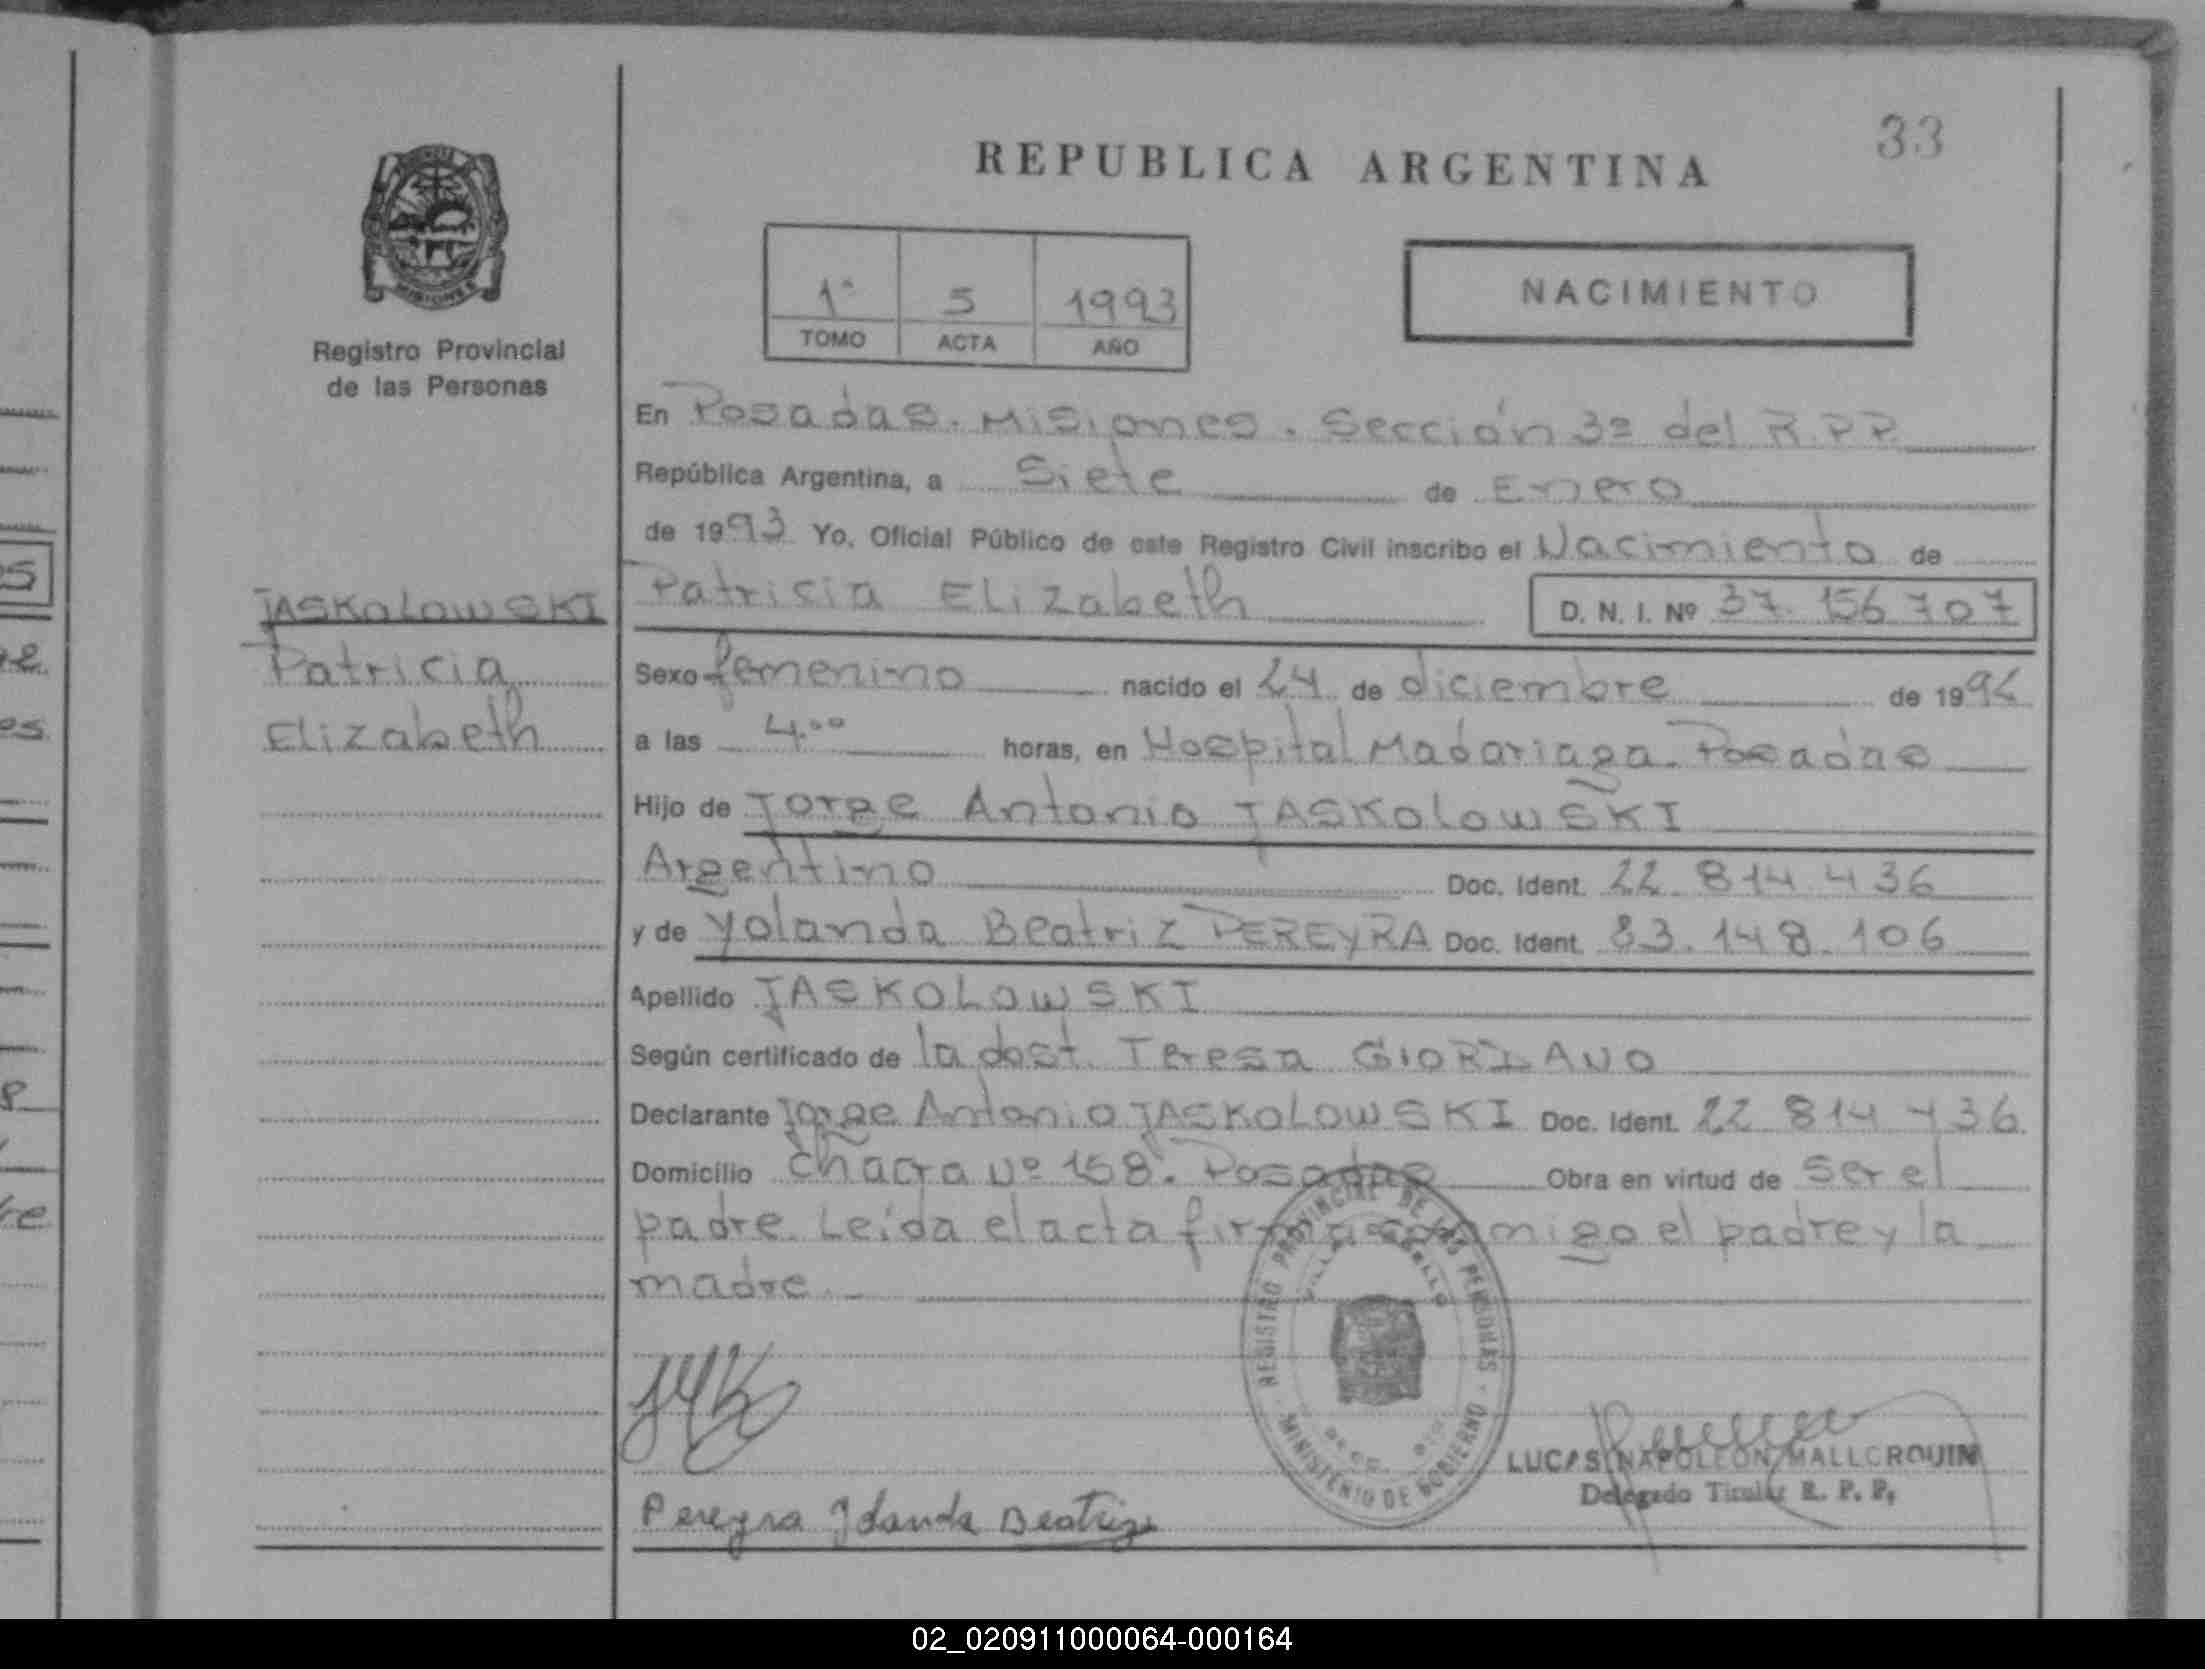 33
REPUBLICA ARGENTINA
MISIONES
Registro Provincial
de las Personas
1ª 5 1993
TOMO ACTA AÑO
NACIMIENTO
En Posadas. Misiones. Sección 3ª del R.P.P.
República Argentina, a Siete de Enero
de 1993 Yo, Oficial Público de este Registro Civil inscribo el Nacimiento de
JASKOLOWSKI
Patricia
Elizabeth
Patricia Elizabeth D. N. I. Nº 37.156 707
Sexo femenino nacido el 24 de diciembre de 1992
a las 4.00 horas, en Hospital Madariaga. Posadas
Hijo de Jorge Antonio JASKOLOWSKI
Argentino Doc. Ident. 22.814.436
y de Yolanda Beatriz PEREYRA Doc. Ident. 33.148.106
Apellido JASKOLOWSKI
Según certificado de la dost. Teresa GIORDANO
Declarante Jorge Antonio JASKOLOWSKI Doc. Ident. 22 814 436
Domicilio Chacra Nº 158. Posadas Obra en virtud de ser el
padre. Leída el acta firma conmigo el padre y la
madre.
REGISTRO PROVINCIAL DE LAS PERSONAS
MINISTERIO DE GOBIERNO
LUCAS NAPOLEON MALLORQUIN
Delegado Titular R. P. P.
Pereyra Yolanda Beatriz
02_020911000064-000164